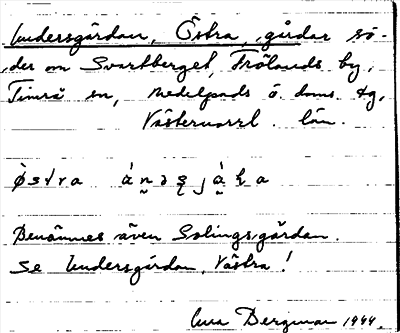 Undersgårdan, Östra, gårdar sö-
der om Svartberget, Frölands by,
Timrå sn, Medelpads ö. doms. tg,
Västernorrl. län.
Östra
Benämnes även Solingsgårdan.
Se Undersgårdan, Västra!
Bergman 1944.